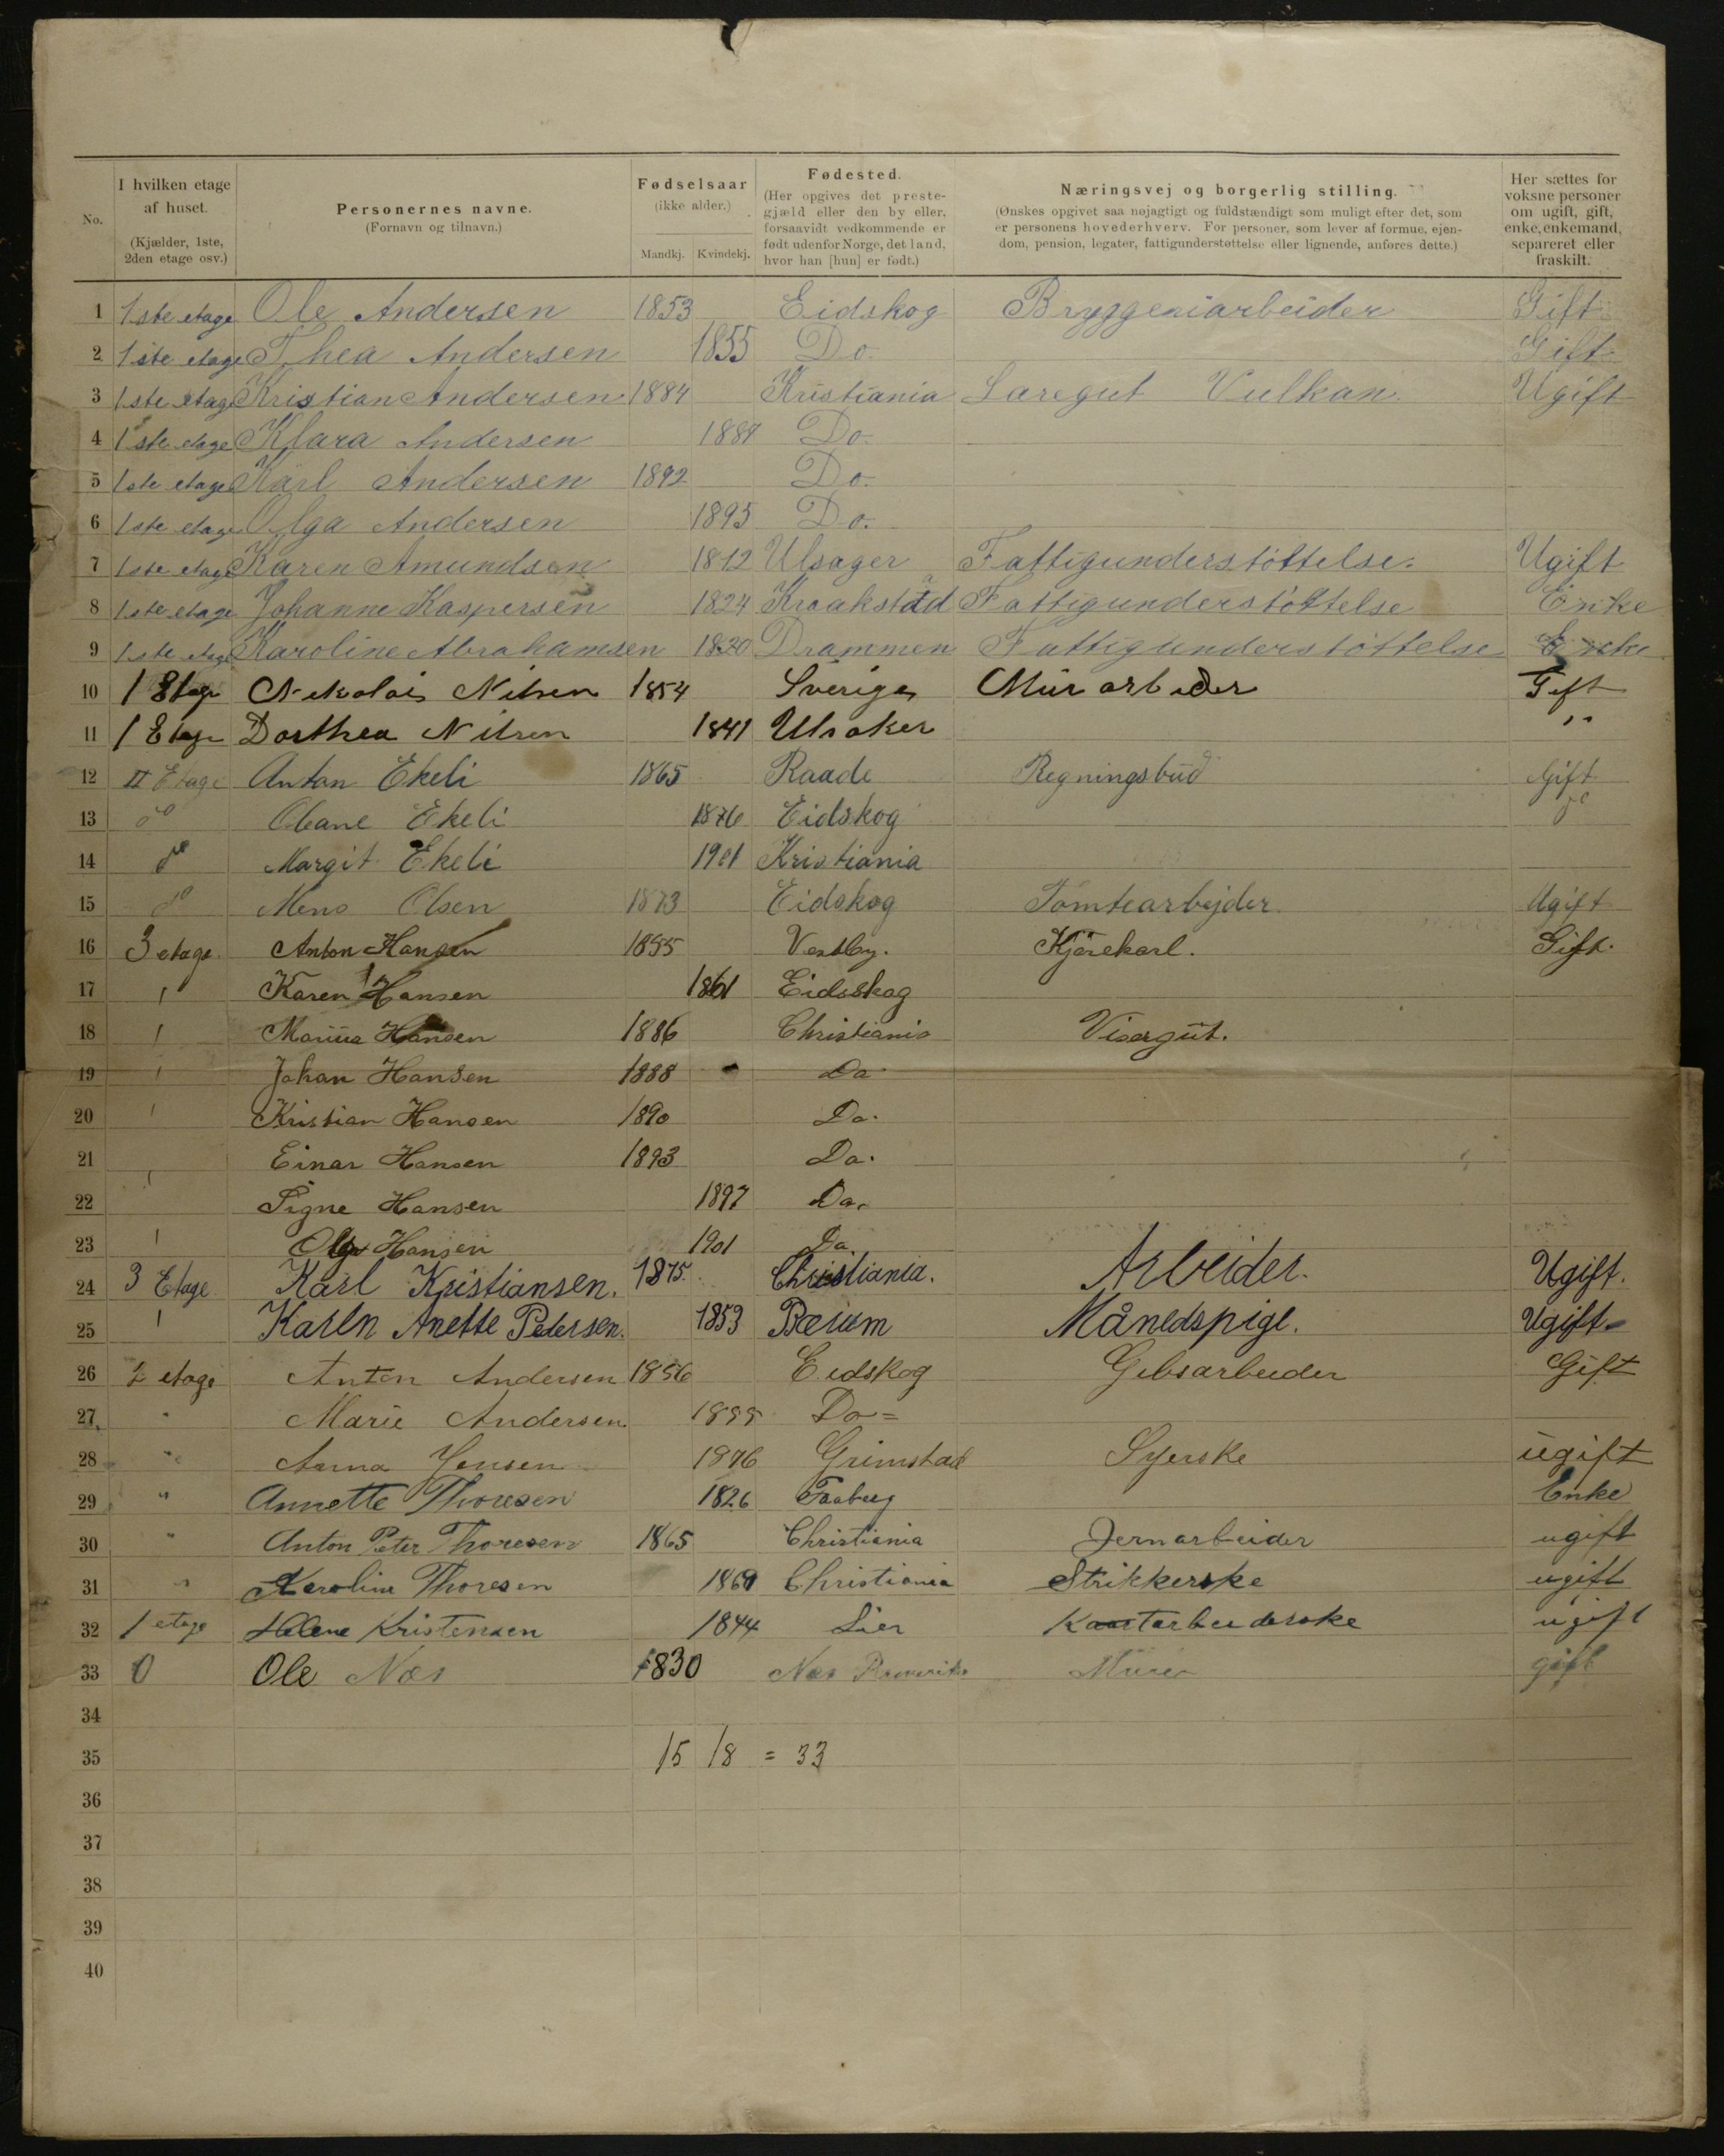 No.
I hvilken etage af huset. (Kjælder, 1ste, 2den etage osv.)
Personernes navne. (Fornavn og tilnavn.)
Fødselsaar (ikke alder.) Mandkj. Kvindekj.
Fødested. (Her opgives det preste-gjæld eller den by eller, forsaavidt vedkommende er født udenfor Norge, det land, hvor han [hun] er født.)
Næringsvej og borgerlig stilling. (Ønskes opgivet saa nøjagtigt og fuldstændigt som muligt efter det, som er personens hovederhverv. For personer, som lever af formue, ejendom, pension, legater, fattigunderstøttelse eller lignende, anføres dette.)
Her sættes for voksne personer om ugift, gift, enke, enkemand, separeret eller fraskilt.
1 1ste etage Ole Andersen 1853 Eidskog Bryggeriarbeider Gift
2 1ste etage Thea Andersen 1855 Do. Gift
3 1ste etage Kristian Andersen 1884 Kristiania Læregut Vulkan. Ugift
4 1ste etage Klara Andersen 1887 Do.
5 1ste etage Karl Andersen 1892 Do.
6 1ste etage Olga Andersen 1895 Do.
7 1ste etage Karen Amundsen 1812 Ulsager Fattigunderstöttelse. Ugift
8 1ste etage Johanne Kaspersen 1824 Kraakstad Fattigunderstöttelse Enke
9 1ste etage Karoline Abrahamsen 1820 Drammen Fattigunderstöttelse Enke
10 1 Etage Nikolai Nilsen 1854 Sverige Mürarbeider Gift
11 1 Etage Dorthea Nilsen 1841 Ulsaker "
12 II Etage Anton Ekeli 1865 Raade Regningsbüd Gift
13 do Oleane Ekeli 1876 Eidskog do
14 do Margit Ekeli 1901 Kristiania
15 do Mens Olsen 1873 Eidskog Tomtearbejder. Ugift
16 3 etage. Anton Hansen 1855 Vestby. Kjörekarl. Gift.
17 " Karen Hansen 1861 Eidsskog
18 " Marius Hansen 1886 Christiania Visergüt.
19 " Johan Hansen 1888 Do
20 " Kristian Hansen 1890 Do.
21 Einar Hansen 1893 Do.
22 " Signe Hansen 1897 Do.
23 " Olga Hansen 1901 Do.
24 3 Etage. Karl Kristiansen. 1875. Christiania. Arbeider. Ugift.
25 " Karen Anette Petersen. 1853 Bærum Månedspige. Ugift.
26 2 etage Anton Andersen 1856 Eidskog Gibsarbeider Gift
27 " Marie Andersen. 1855 Do =
28 " Anna Jensen 1876 Grimstad Syerske ugift
29 " Annette Thoresen 1826 Faaberg Enke
30 " Anton Peter Thoresen 1865 Christiania Jernarbeider ugift
31 " Karoline Thoresen 1869 Christiania Strikkerske ugift
32 1 etage Helene Kristensen 1844 Lier ugift
33 0 Ole Næs 1830 Nes Romerike Murer gift
34
35 15 18 = 33
36
37
38
39
40